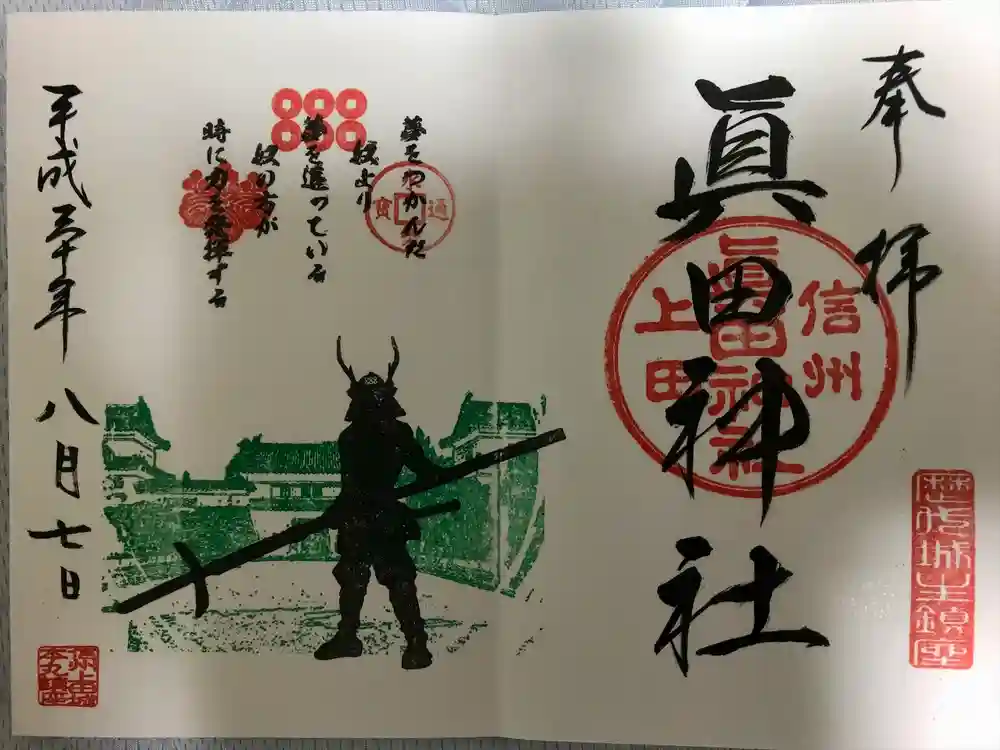 奉拝
眞田神社
眞田神社
信州
上田
歴代城主鎮座
夢をつかんだ
奴より
夢を追っている
奴の方が
時に力を発揮する
通
寳
平成三十年
八月七日